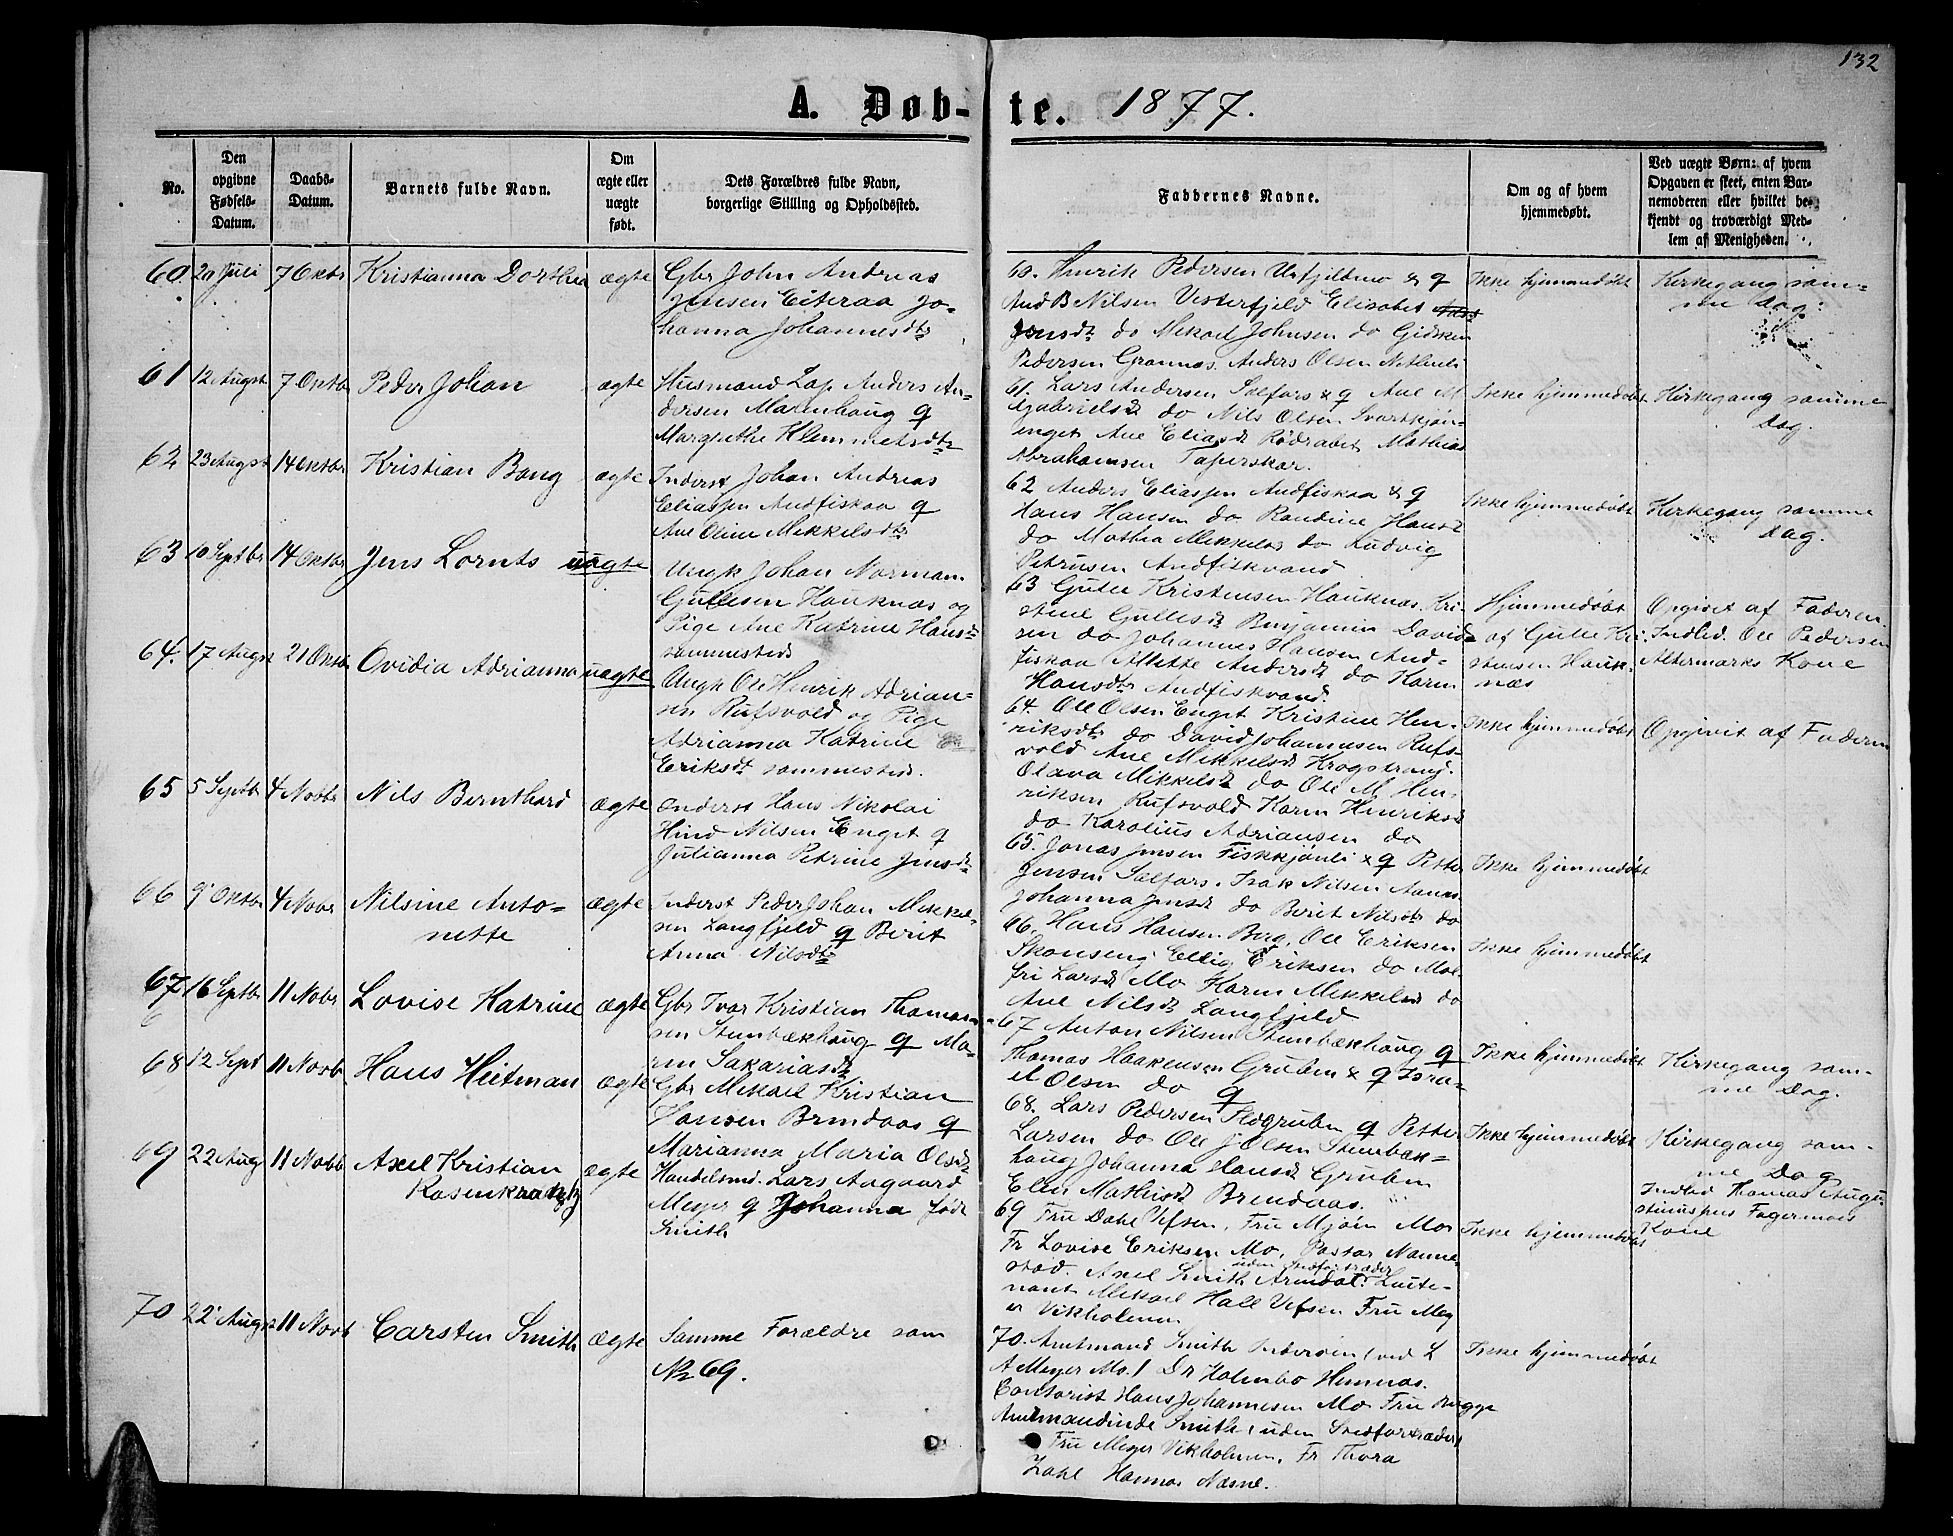 132
A. Døb-te. 1877.
No.
Den opgivne Fødsels-Datum.
Daabs-Datum.
Barnets fulde Navn.
Om ægte eller uægte født.
Dets Forældres fulde Navn,
borgerlige Stilling og Opholdssted.
Faddernes Navne.
Om og af hvem
hjemmedøbt.
Ved uægte Børn: af hvem
Opgaven er skeet, enten Bar-
nemoderen eller hvilket be-
kjendt og troværdigt Med-
lem af Menigheden.
60. 20 Juli 7 Oktbr Kristianna Dorthea ægte
Gbr John Andreas
Jensen Eiteraa Jo-
hanna Johannesdtr
60. Henrik Pedersen Urfjeldmo & q
And B Nilsen Vesterfjeld Elisabet
Jensdtr do Mikael Johnsen do Gidsken
Pedersen Grannæs. Anders Olsen
Ikke hjemmedøbt
Kirkegang sam-
me Dag.
61 12 Augst 7 Oktbr Peder Johan ægte
Husmand Lap Anders An-
dersen Marenhaug q
Margrethe Klemmetsdtr
61. Lars Andersen Selfors & q Ane M
Gabrielsd do Nils Olsen Svartkjøn-
enget Ane Eliasd Rødraaet Mathias
Abrahamsen Taperskar.
Ikke hjemmedøbt
Kirkegang samme
Dag.
62 23 Augst 14 Oktbr Kristian Bang ægte
Inderst Johan Andreas
Eliassen Andfiskaa q
Ane Oline Mikkelsdtr
62 Anders Eliassen Andfiskaa & q
Hans Hansen do Randine Hansd
do Mathea Mikkelsd do Ludvig
Petrusen Andfiskvand
Ikke hjemmedøbt
Kirkegang samme
Dag.
63 10 Septbr 14 Oktbr Jens Lornts uægte
Ungk Johan Norman
Gullesen Hauknæs og
Pige Ane Katrine Hansd
sammesteds
63 Gulle Kristensen Hauknæs. Kri-
stine Gullesd Benjamin Davids
sen do Johannes Hansen And-
fiskaa Allette Andersd do Karen
Hansdtr Andfiskvand.
Hjemmedøbt
af Gulle Kri-
stensen Hauk-
næs
Opgivet af Faderen
Indled. Ole Pedersen
Altermarks Kone
64. 17 Augst 21 Oktbr Ovidia Adrianna uægte
Ungk Ole Henrik Adrian-
sen Rufsvold og Pige
Adrianna Katrine
Eriksdt sammesteds.
64. Ole Olsen Enget Kristine Hen-
riksdtr do David Johannesen Rufs-
vold Ane Mikkelsd Krogstrand.
Olava Mikkelsd do Ole M Hen-
riksen Rufsvold Karen Henriksd
do Karolius Adriansen do
Ikke hjemmedøbt
Opgivit af Faderen
65 5 Septbr 4 Nobr Nils Bernthard ægte
Inderst Hans Nikolai
Hind Nilsen Enget q
Julianna Petrine Jensdt
65. Jonas Jensen Fiskkjønli & q Petter
Jensen Selfors. Isak Nilsen Aanes
Johanna Jensd do Berit Nilsdtr do
Ikke hjemmedøbt
66 9 Oktbr 4 Novr Nilsine Anto-
nette ægte
Inderst Peder Johan Mikkel-
sen Langfjeld q Berit
Anna Nilsdtr
66. Hans Hansen Berg, Ole Eriksen
Skonseng Ellig Eriksen do Mal-
fri Larsd Mo Karen Mikkelsd do
Ane Nilsd Langfjeld
Ikke hjemmedøbt
67 16 Septbr 11 Nobr Lovise Katrine ægte
Gbr Ivar Kristian Thomas-
sen Stenbækhaug q Ma-
ren Sakariasd
67 Anton Nilsen Stenbækhaug q
Thomas Haakensen Gruben & q Isra-
el Olsen do q
Ikke hjemmedøbt
Kirkegang sam-
me Dag.
68 12 Sept 11 Novb Hans Heitman ægte
Gbr Mikael Kristian
Hansen Brendaas q
Marianna Maria Olsd
68. Lars Pedersen Flegruben q Petter
Larsen do Ole J Olsen Stenbæk-
haug Johanna Hansd Gruben
Elen Mathisd Brendaas.
Ikke hjemmedøbt
Kirkegang sam-
me Dag
69 22 Aug 11 Novb Axel Kristian
Rosenkrantz ægte
Handelsmd. Lars Aagaard
Meyer q Johanna født
Smith
69 Fru Dahl Vefsen, Fru Mjøen Mo
Fr Lovise Eriksen Mo, Pastor Nanne-
stad. Axel Smith Arendal uden Stedfortræder Løite-
nant Mikael Hall Vefsen Fru Mey
er Vikholmen
Ikke hjemmedøbt
Indled Thomas Augu-
stinuspus Fagermoes
Kone
70 22 Augst 11 Novb Carsten Smith ægte
Samme Forældre som
No 69.
70. Amtmand Smith Inderøen (ved L
A Meyer Mo.) Dr Holmbo Hemnæs.
Contorist Hans Johannesen Mo Fru Bugge
Amtmandinde Smith (uden Stedfortræder)
Fru Meyer Vikholmen, Fr Thora
Zahl Hannas Næsne.
Ikke hjemmedøbt